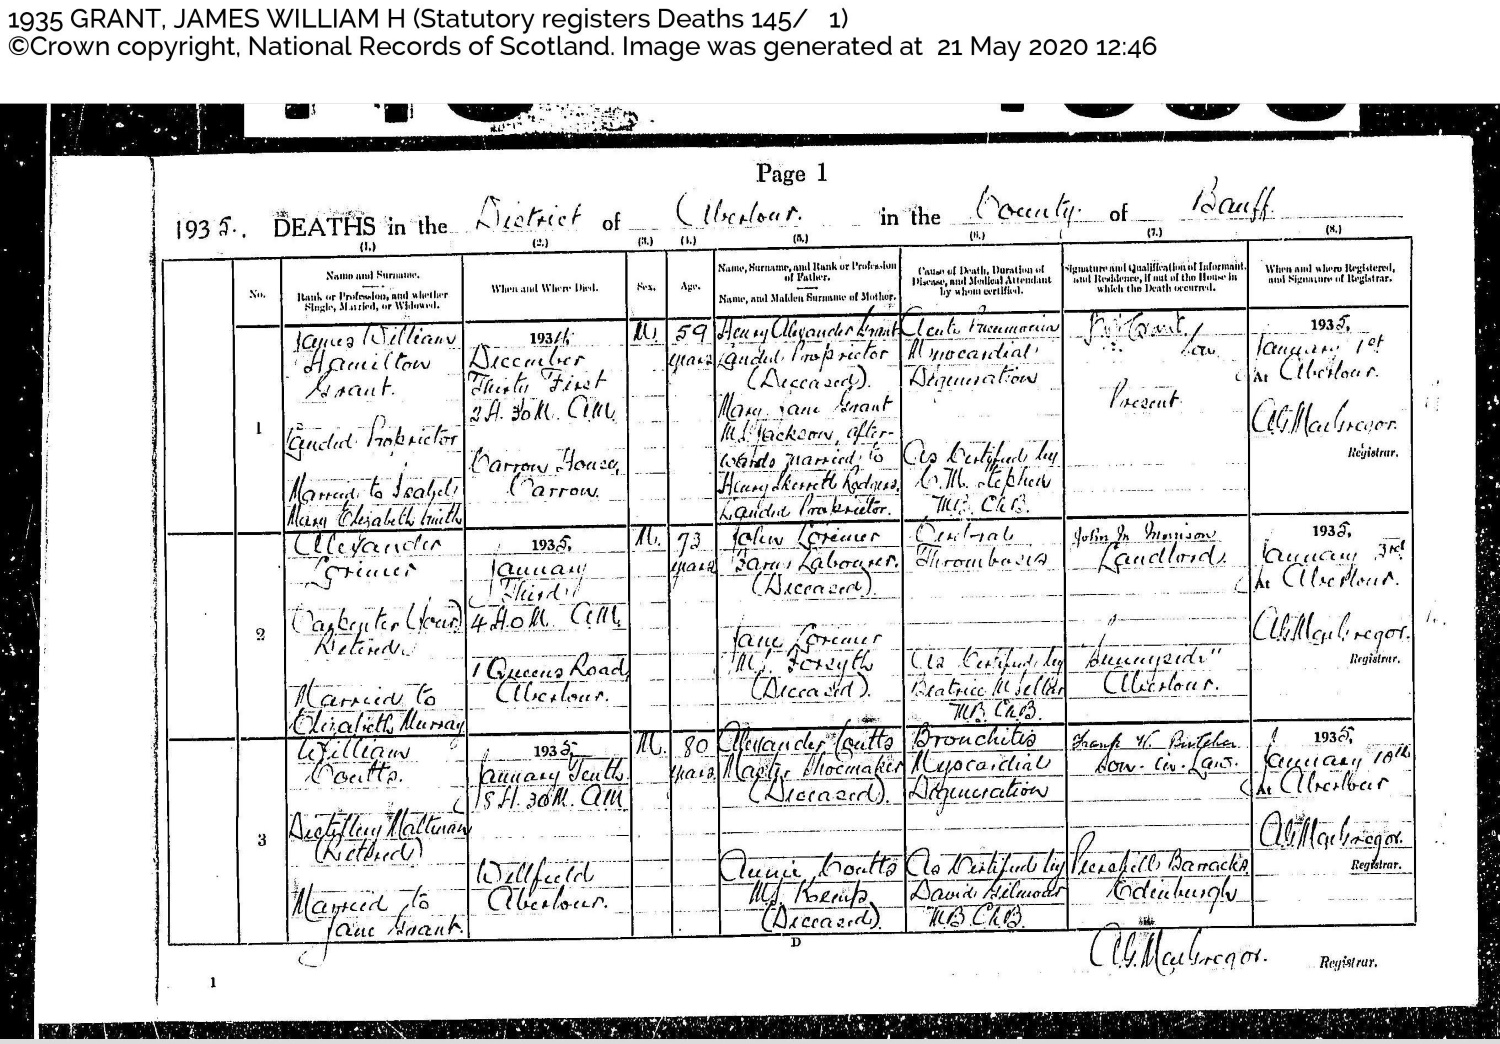 1935 GRANT, JAMES WILLIAM H (Statutory registers Deaths 145/ 1)
©Crown copyright, National Records of Scotland. Image was generated at 21 May 2020 12:46
Page 1
1935. DEATHS in the District of Aberlour. in the County of Banff.
(1.) (2.) (3.) (4.) (5.) (6.) (7.) (8.)
No.
Name and Surname.
Rank or Profession, and whether
Single, Married, or Widowed.
When and Where Died.
Sex.
Age.
Name, Surname, and Rank or Profession
of Father.
Name, and Maiden Surname of Mother.
Cause of Death, Duration of
Disease, and Medical Attendant
by whom certified.
Signature and Qualification of Informant,
and Residence, if out of the House in
which the Death occurred.
When and where Registered,
and Signature of Registrar.
1
James William
Hamilton
Grant.
Landed Proprietor
Married to Isabel
Mary Elizabeth Smith
1934
December
Thirty First
2 H. 30 M. A.M.
Carron House,
Carron.
M.
59
years
Henry Alexander Grant
Landed Proprietor
(Deceased).
Mary Jane Grant
M.S. Jackson, after-
wards married to
Henry Skerrett Rodgers,
Landed Proprietor.
Acute Pneumonia
Myocardial
Degeneration
As Certified by
C. M. Stephen
M.B. Ch.B.
Grant
Present
1935,
January 1st
At Aberlour.
A.G. MacGregor.
Registrar.
2
Alexander
Lorimer
Carpenter (Jour)
Retired.
Married to
Elizabeth Murray
1935,
January
Third
4 H. 0 M. A.M.
1 Queens Road,
Aberlour.
M.
73
years
John Lorimer
Farm Labourer.
(Deceased).
Jane Lorimer
M.S. Forsyth
(Deceased).
Cerebral
Thrombosis
As Certified by
Beatrice M. Sellar
M.B. Ch.B.
John M. Morrison
Landlord.
"Sunnyside"
Aberlour.
1935,
January 3rd
At Aberlour.
A.G. MacGregor.
Registrar.
3
William
Coutts.
Distillery Maltman
(Retired)
Married to
Jane Grant.
1935,
January Tenth
8 H. 30 M. A.M.
Wellfield
Aberlour.
M.
80
years
Alexander Coutts
Master Shoemaker
(Deceased).
Annie Coutts
M.S. Kemp
(Deceased).
Bronchitis
Myocardial
Degeneration
As Certified by
David Gilmour
M.B. Ch.B.
Frank H. Butcher
Son-in-Law.
Piershill Barracks,
Edinburgh
1935,
January 10th
At Aberlour
A.G. MacGregor.
Registrar.
D
A.G. MacGregor.
Registrar.
1